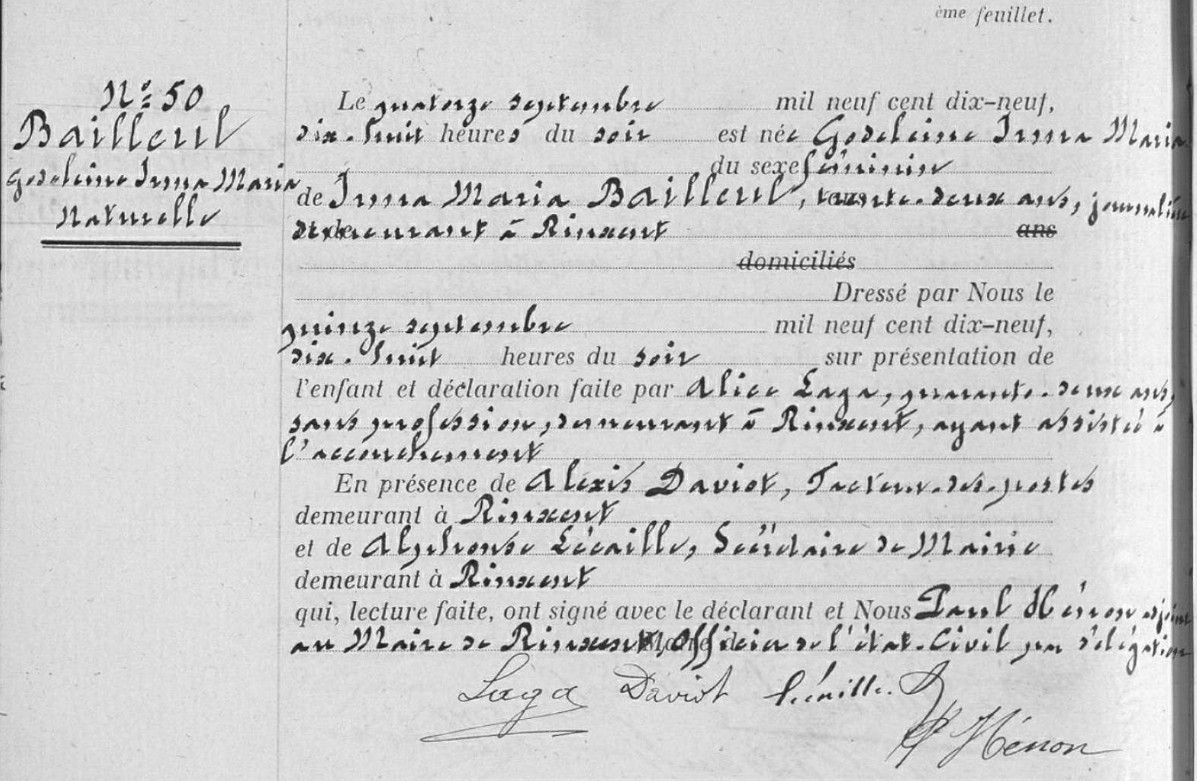 ème feuillet.
N° 50
Bailleul
Godeleine Irma Maria
Naturelle
Le quatorze septembre mil neuf cent dix-neuf,
dix-huit heures du soir est née Godeleine Irma Maria
du sexe féminin
de Irma Maria Bailleul, trente-deux ans, journalière
demeurant à Rinxent ans
domiciliés
Dressé par Nous le
quinze septembre mil neuf cent dix-neuf,
dix-huit heures du soir sur présentation de
l'enfant et déclaration faite par Alice Laga, quarante-deux ans,
sans profession, demeurant à Rinxent, ayant assisté à
l'accouchement
En présence de Alexis Daviot, Facteur-des-postes
demeurant à Rinxent
et de Alphonse Lécaille, Secrétaire de Mairie
demeurant à Rinxent
qui, lecture faite, ont signé avec le déclarant et Nous Paul Hénon adjoint
au Maire de Rinxent, Officier de l'état-Civil par délégation
Laga Daviot Lécaille
P Hénon